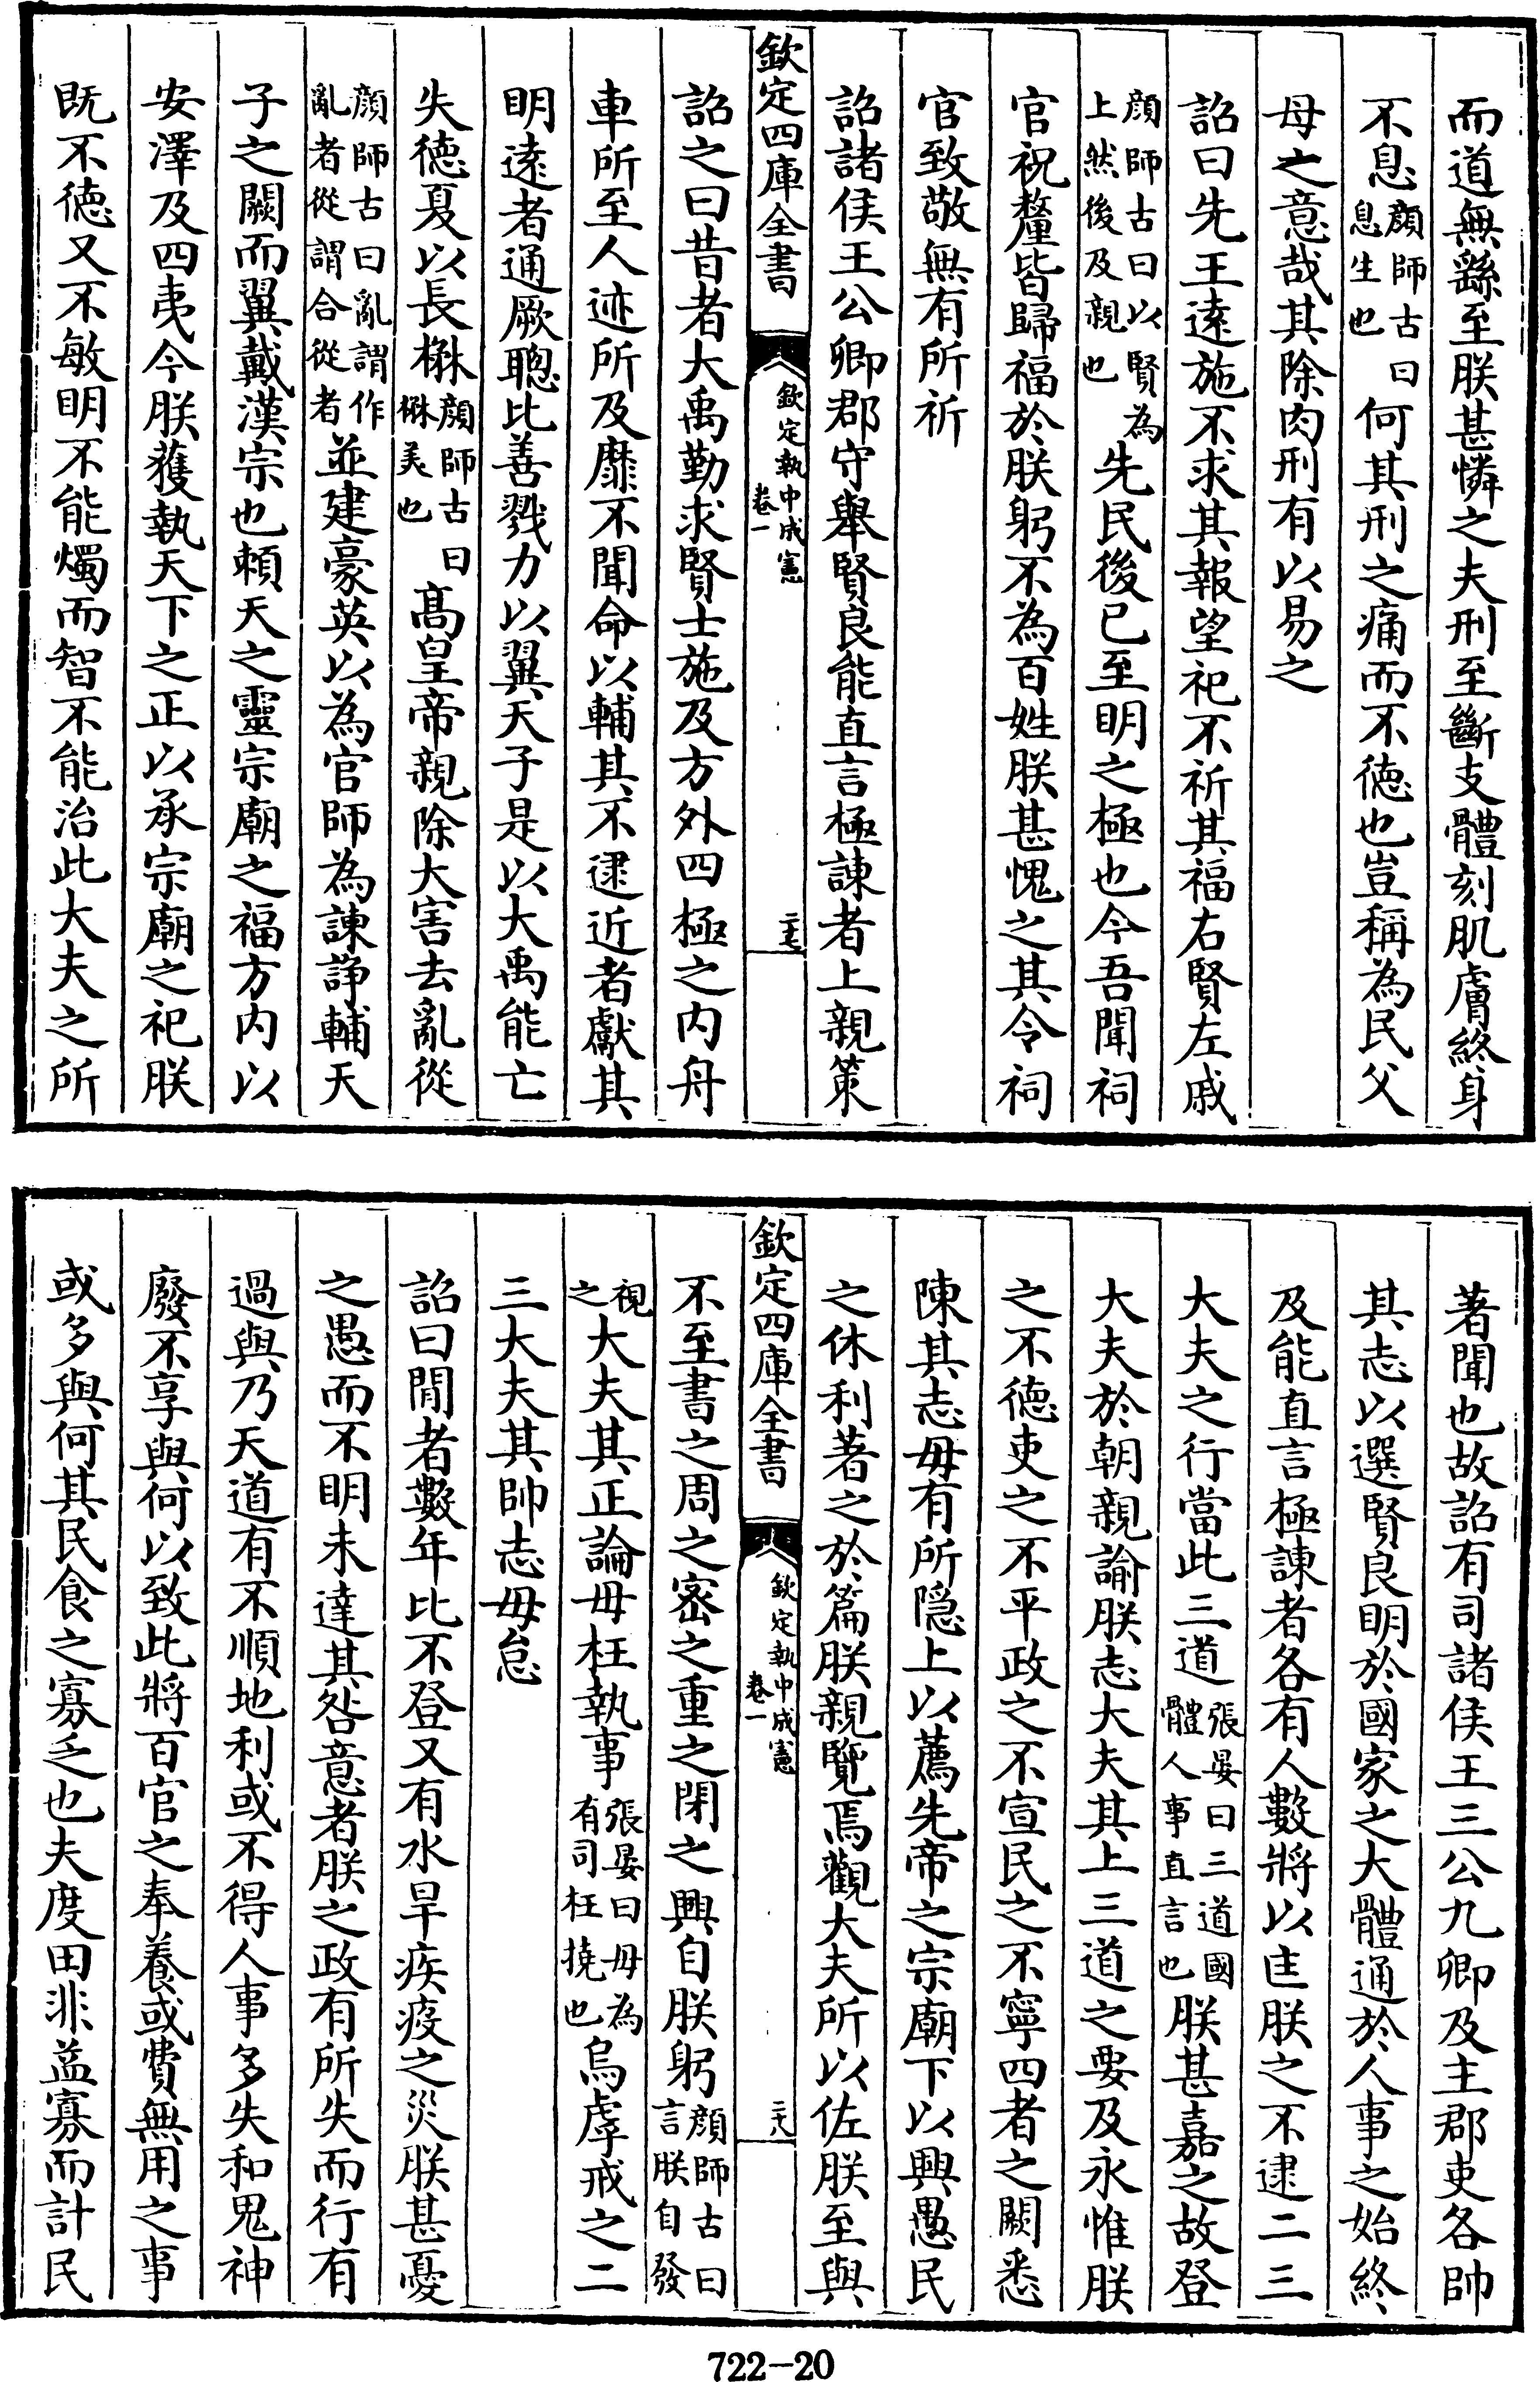 而道無繇至朕甚憐之夫刑至斷支體刻肌膚終身
不息顔師古曰息生也何其刑之痛而不徳也豈稱為民父
母之意哉其除肉刑有以易之
詔曰先王逺施不求其報望祀不祈其福右賢左戚
顔師古曰以賢為上然後及親也先民後已至明之極也今吾聞祠
官祝釐皆歸福於朕躬不為百姓朕甚愧之其令祠
官致敬無有所祈
詔諸侯王公卿郡守舉賢良能直言極諫者上親策
欽定四庫全書 欽定執中成憲 卷一 二十七
詔之曰昔者大禹勤求賢士施及方外四極之内舟
車所至人迹所及靡不聞命以輔其不逮近者獻其
明逺者通厥聰比善戮力以翼天子是以大禹能亡
失徳夏以長楙顔師古曰楙美也髙皇帝親除大害去亂從
顔師古曰亂謂作亂者從謂合從者並建豪英以為官師為諫諍輔天
子之闕而翼戴漢宗也頼天之靈宗廟之福方内以
安澤及四夷今朕獲執天下之正以承宗廟之祀朕
既不徳又不敏明不能燭而智不能治此大夫之所
著聞也故詔有司諸侯王三公九卿及主郡吏各帥
其志以選賢良明於國家之大體通於人事之始終
及能直言極諫者各有人數將以匡朕之不逮二三
大夫之行當此三道張晏曰三道國體人事直言也朕甚嘉之故登
大夫於朝親諭朕志大夫其上三道之要及永惟朕
之不徳吏之不平政之不宣民之不寧四者之闕悉
陳其志毋有所隠上以薦先帝之宗廟下以興愚民
之休利著之於篇朕親覽焉觀大夫所以佐朕至與
欽定四庫全書 欽定執中成憲 卷一 二十八
不至書之周之宻之重之閉之興自朕躬顔師古曰言朕自發
視之大夫其正論毋枉執事張晏曰毋為有司枉撓也烏虖戒之二
三大夫其帥志毋怠
詔曰閒者數年比不登又有水旱疾疫之災朕甚憂
之愚而不明未達其咎意者朕之政有所失而行有
過與乃天道有不順地利或不得人事多失和鬼神
廢不享與何以致此將百官之奉養或費無用之事
或多與何其民食之寡乏也夫度田非益寡而計民
722-20